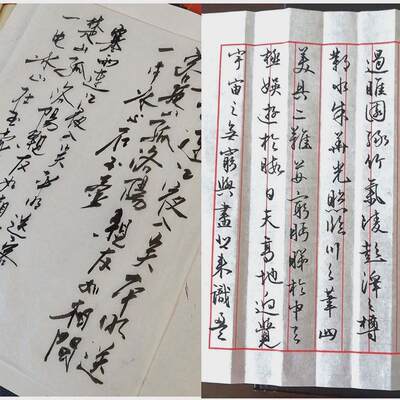 寒雨連江夜入吴平明送
客楚山孤洛陽親友如相問
一片冰心在玉壺
寒雨連江夜入吴平明送客
楚山孤洛陽親友如相
一片冰心在玉壺
過睢園綠竹氣凌彭澤之樽
鄴水朱華光照臨川之筆四
美具二難并窮眄睇於中天
極娛遊於暇日天高地迥覺
宇宙之無窮興盡悲來識盈